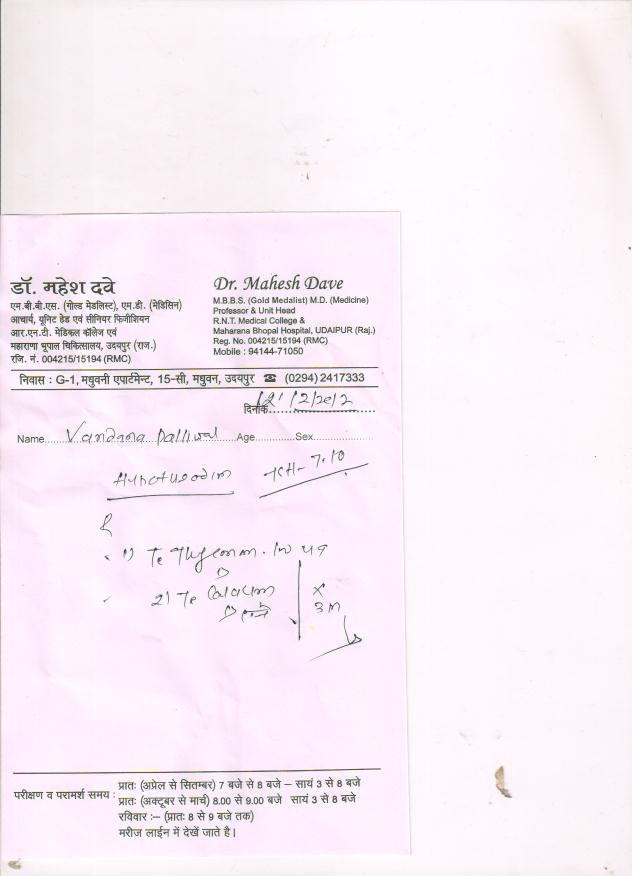 डॉ. महेश दवे
एम.बी.बी.एस. (गोल्ड मेडलिस्ट), एम.डी. (मेडिसिन)
आचार्य, यूनिट हेड एवं सीनियर फिजीशियन
आर.एन.टी. मेडिकल कॉलेज एवं
महाराणा भूपाल चिकित्सालय, उदयपुर (राज.)
रजि. नं. 004215/15194 (RMC)
Dr. Mahesh Dave
M.B.B.S. (Gold Medalist) M.D. (Medicine)
Professor & Unit Head
R.N.T. Medical College &
Maharana Bhopal Hospital, UDAIPUR (Raj.)
Reg. No. 004215/15194 (RMC)
Mobile : 94144-71050
निवास : G-1, मधुवनी एपार्टमेन्ट, 15-सी, मधुवन, उदयपुर ☎ (0294) 2417333
दिनांक
Name Vandana Paliwal Age Sex
TSH- 7.10
1)
2) Te Calcium
x
3m
परीक्षण व परामर्श समय : प्रातः (अप्रेल से सितम्बर) 7 बजे से 8 बजे – सायं 3 से 8 बजे
प्रातः (अक्टूबर से मार्च) 8.00 से 9.00 बजे सायं 3 से 8 बजे
रविवार :– (प्रातः 8 से 9 बजे तक)
मरीज लाईन में देखें जाते है।